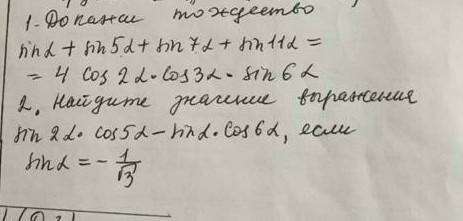 1. Докажи тождество
sinα + sin5α + sin7α + sin11α =
= 4 cos2α·cos3α·sin6α
2. Найдите значение выражения
sin2α·cos5α - sinα·cos6α, если
sinα = -1/√3